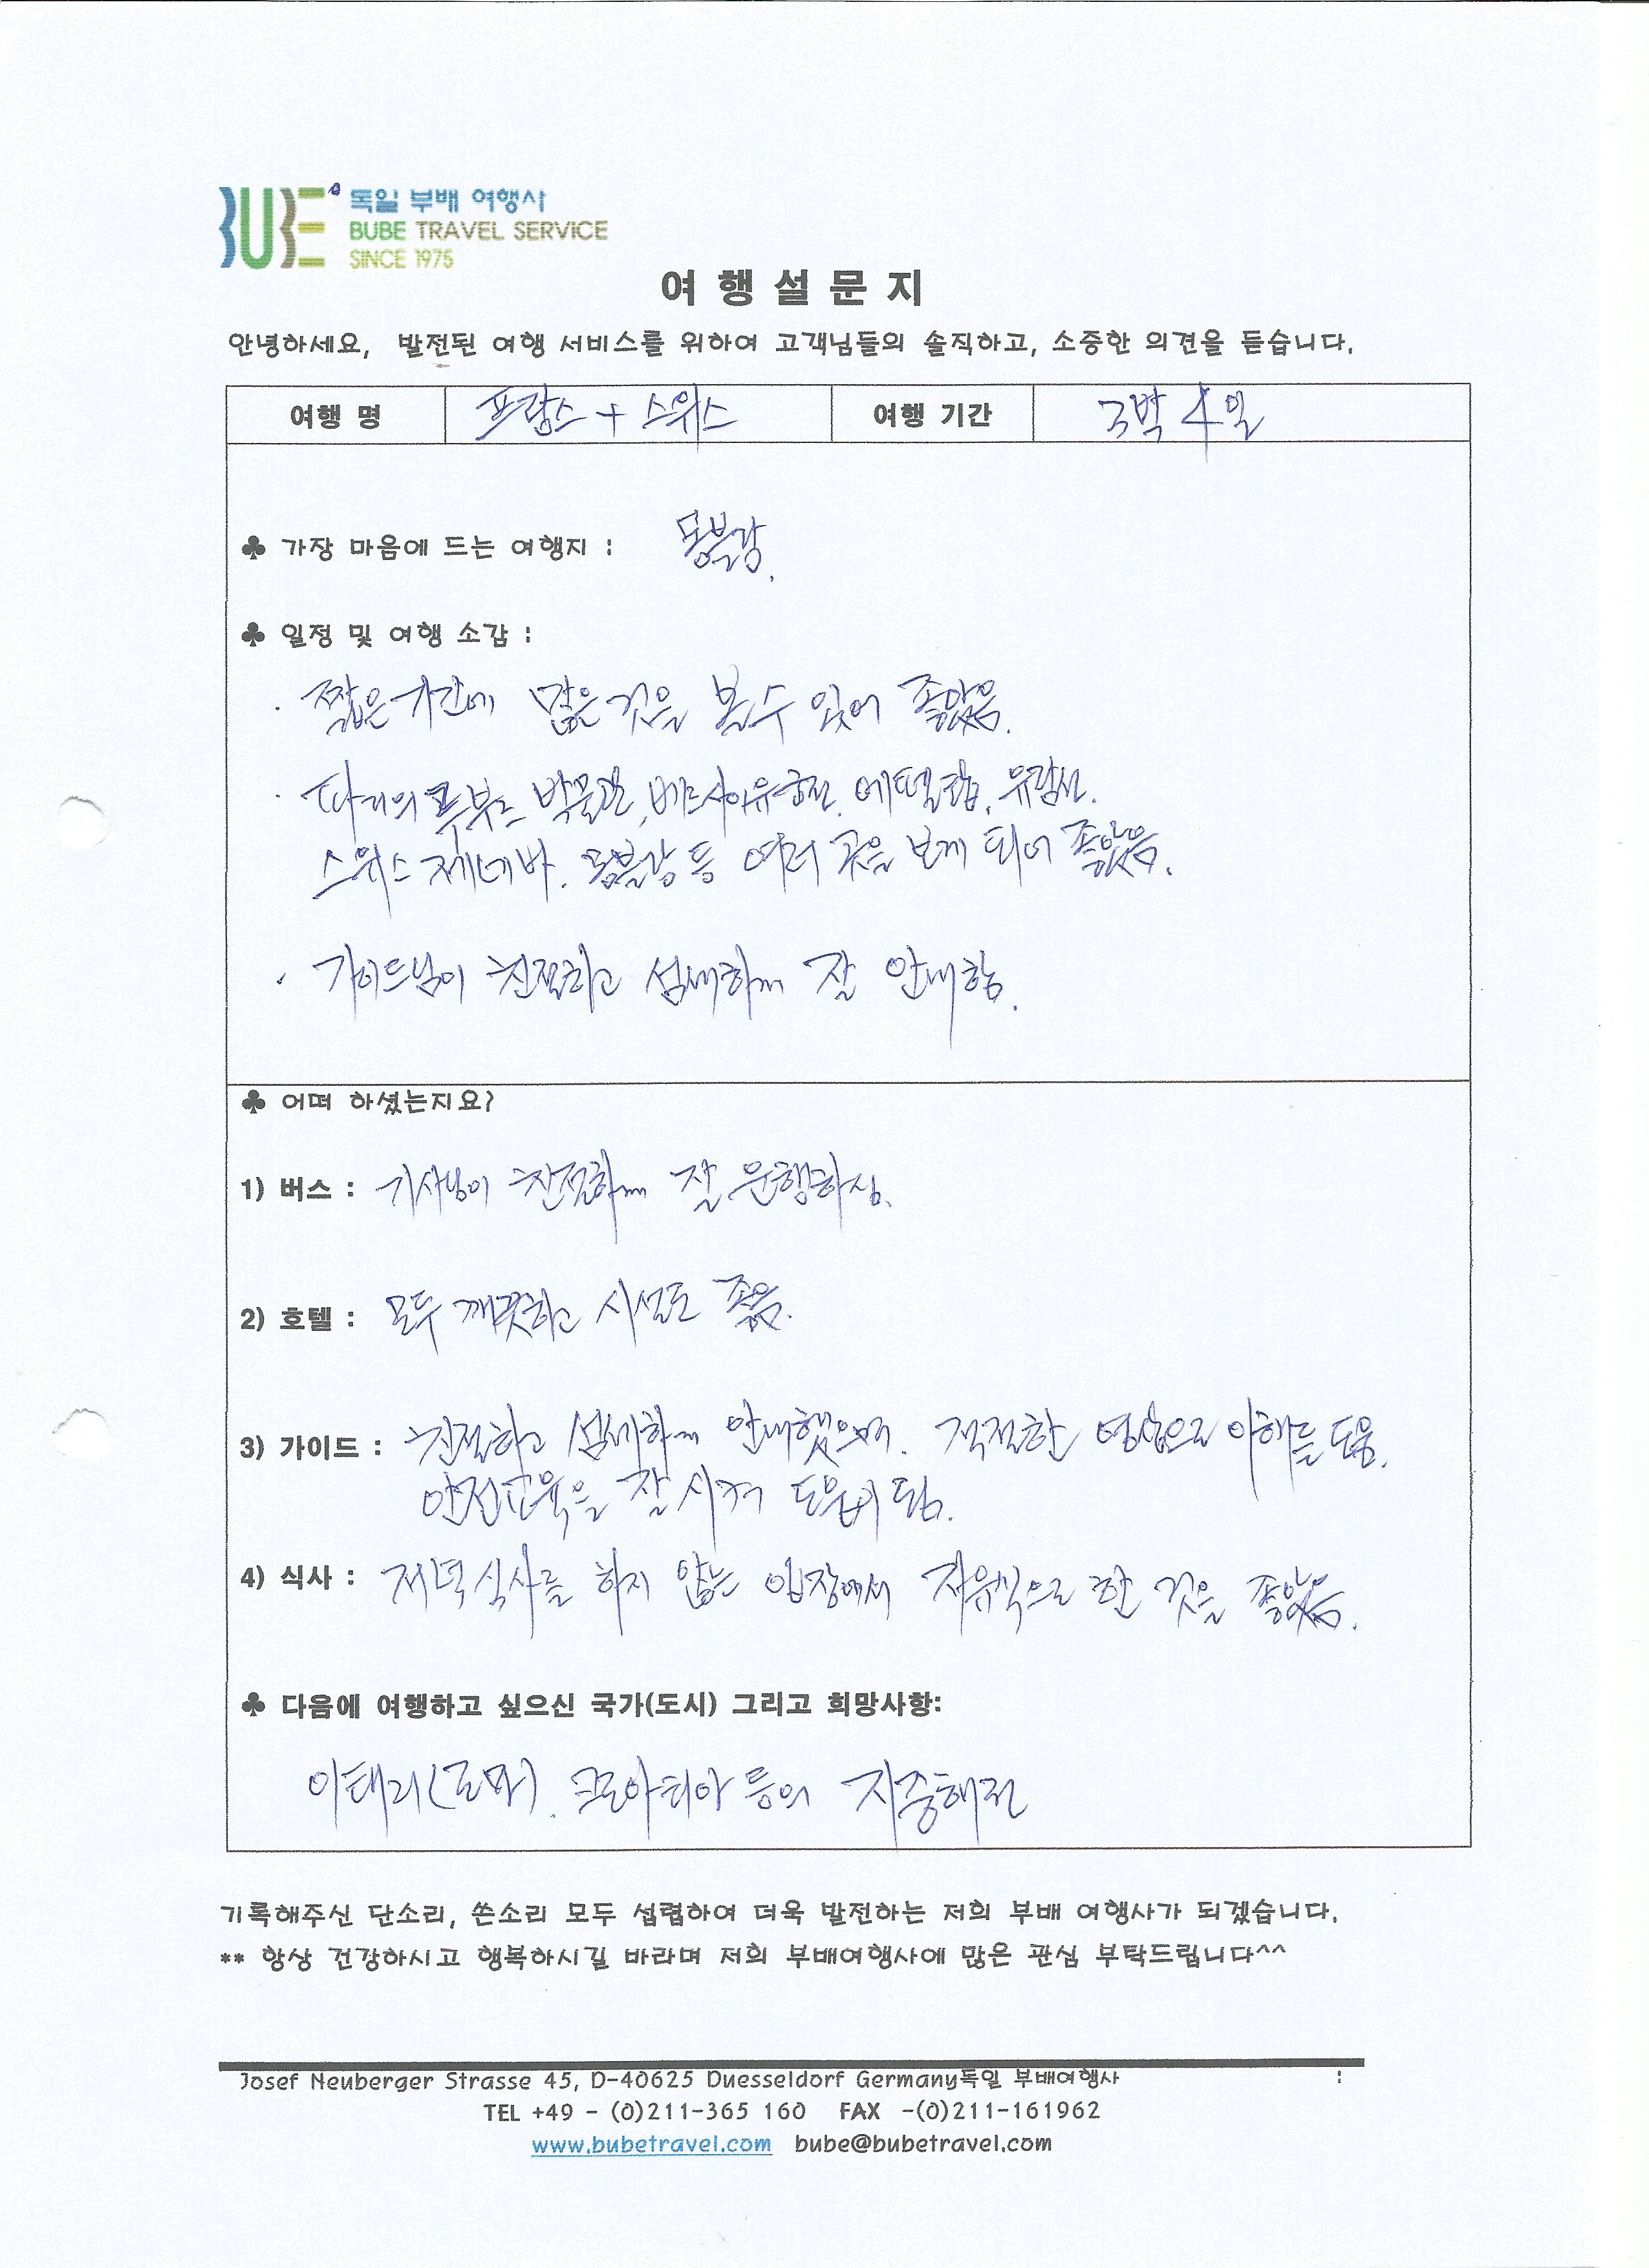 BUBE 독일 부배 여행사
BUBE TRAVEL SERVICE
SINCE 1975
여 행 설 문 지
안녕하세요, 발전된 여행 서비스를 위하여 고객님들의 솔직하고, 소중한 의견을 듣습니다.
여행 명 프랑스 + 스위스 여행 기간 3박 4일
♣ 가장 마음에 드는 여행지 : 몽블랑.
♣ 일정 및 여행 소감 :
· 짧은 기간에 많은 것을 볼수 있어 좋았음.
· 파리의 루부르 박물관, 베르사이유궁전. 에펠탑, 유람선.
스위스 제네바. 몽블랑 등 여러 곳을 보게 되어 좋았음.
· 가이드님이 친절하고 섬세하게 잘 안내함.
♣ 어떠 하셨는지요?
1) 버스 : 기사님이 친절하게 잘 운행하심.
2) 호텔 : 모두 깨끗하고 시설도 좋음.
3) 가이드 : 친절하고 섬세하게 안내했으며. 적절한 영상으로 이해를 도움.
안전교육을 잘 시켜 도움이 됨.
4) 식사 : 저녁식사를 하지 않는 입장에서 자유식으로 한 것을 좋았음.
♣ 다음에 여행하고 싶으신 국가(도시) 그리고 희망사항:
이태리(로마). 크로아티아 등의 지중해권
기록해주신 단소리, 쓴소리 모두 섭렵하여 더욱 발전하는 저희 부배 여행사가 되겠습니다.
** 항상 건강하시고 행복하시길 바라며 저희 부배여행사에 많은 관심 부탁드립니다^^
Josef Neuberger Strasse 45, D-40625 Duesseldorf Germany독일 부배여행사 :
TEL +49 - (0)211-365 160 FAX -(0)211-161962
www.bubetravel.com bube@bubetravel.com